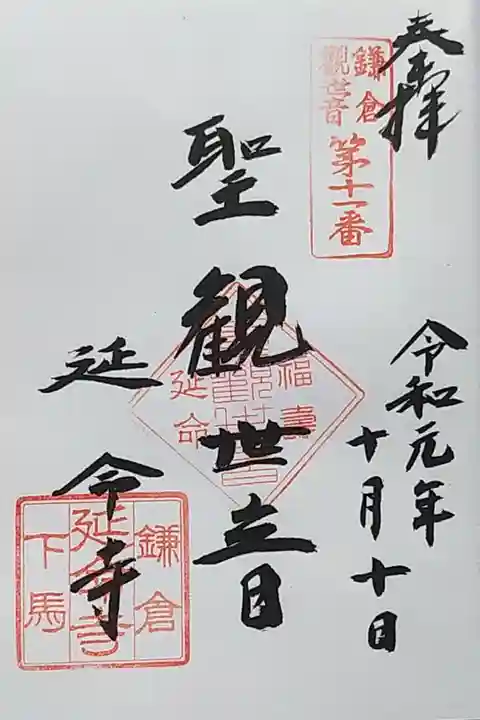 奉拝
鎌倉
觀世音
第十一番
令和元年
十月十日
聖観世音
福壽
延命
延命寺
鎌倉
延命寺
下馬